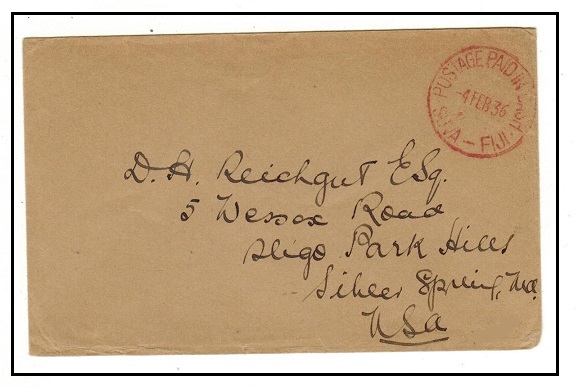 POSTAGE PAID IN
-4 FEB 36
SUVA - FIJI.
D. H. Reichgut Esq.
5 Wessex Road
Sligo Park Hills
Silver Spring, Md.
USA